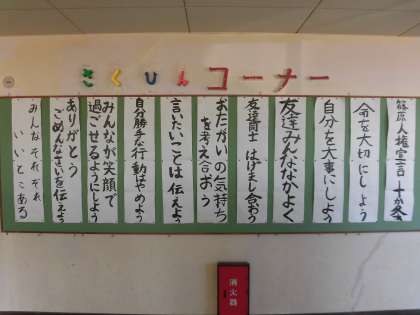 さくひんコーナー
篠原人権宣言 十か条
命を大切にしよう
自分を大事にしよう
友達みんななかよく
友達同士 はげまし合おう
おたがいの気持ち
を考え合おう
言いたいことは伝えよう
自分勝手な行動はやめよう
みんなが笑顔で
過ごせるようにしよう
ありがとう
ごめんなさいを伝えよう
みんなそれぞれ
いいとこある
消火器